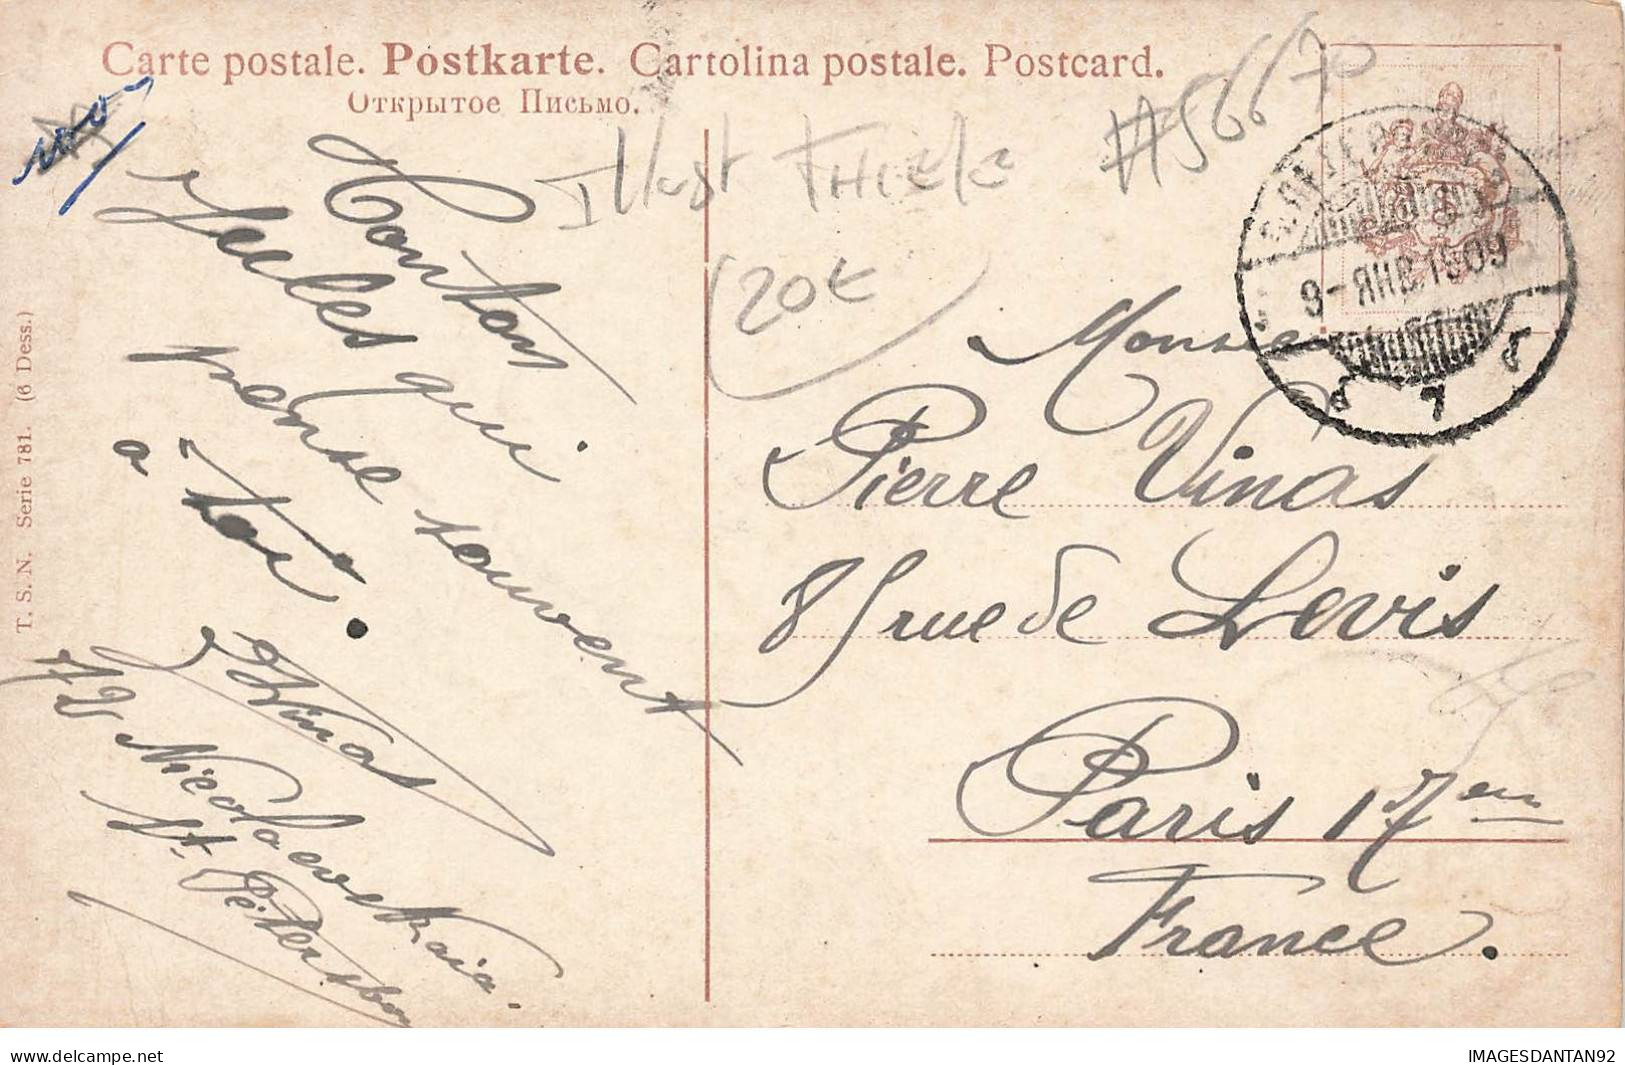 Carte postale. Postkarte. Cartolina postale. Postcard.
Открытое Письмо.
Illust Thiele #56670
20€
T. S. N. Serie 781. (6 Dess.)
Ton ton
Jules qui
pense souvent
à toi.
JVinas
72 Nicolaevskaia.
St. Pétersbourg
9-ЯНВ.1909
7
Monsieur
Pierre Vinas
85 rue de Levis
Paris 17em
France.
delcampe.net
IMAGESDANTAN92